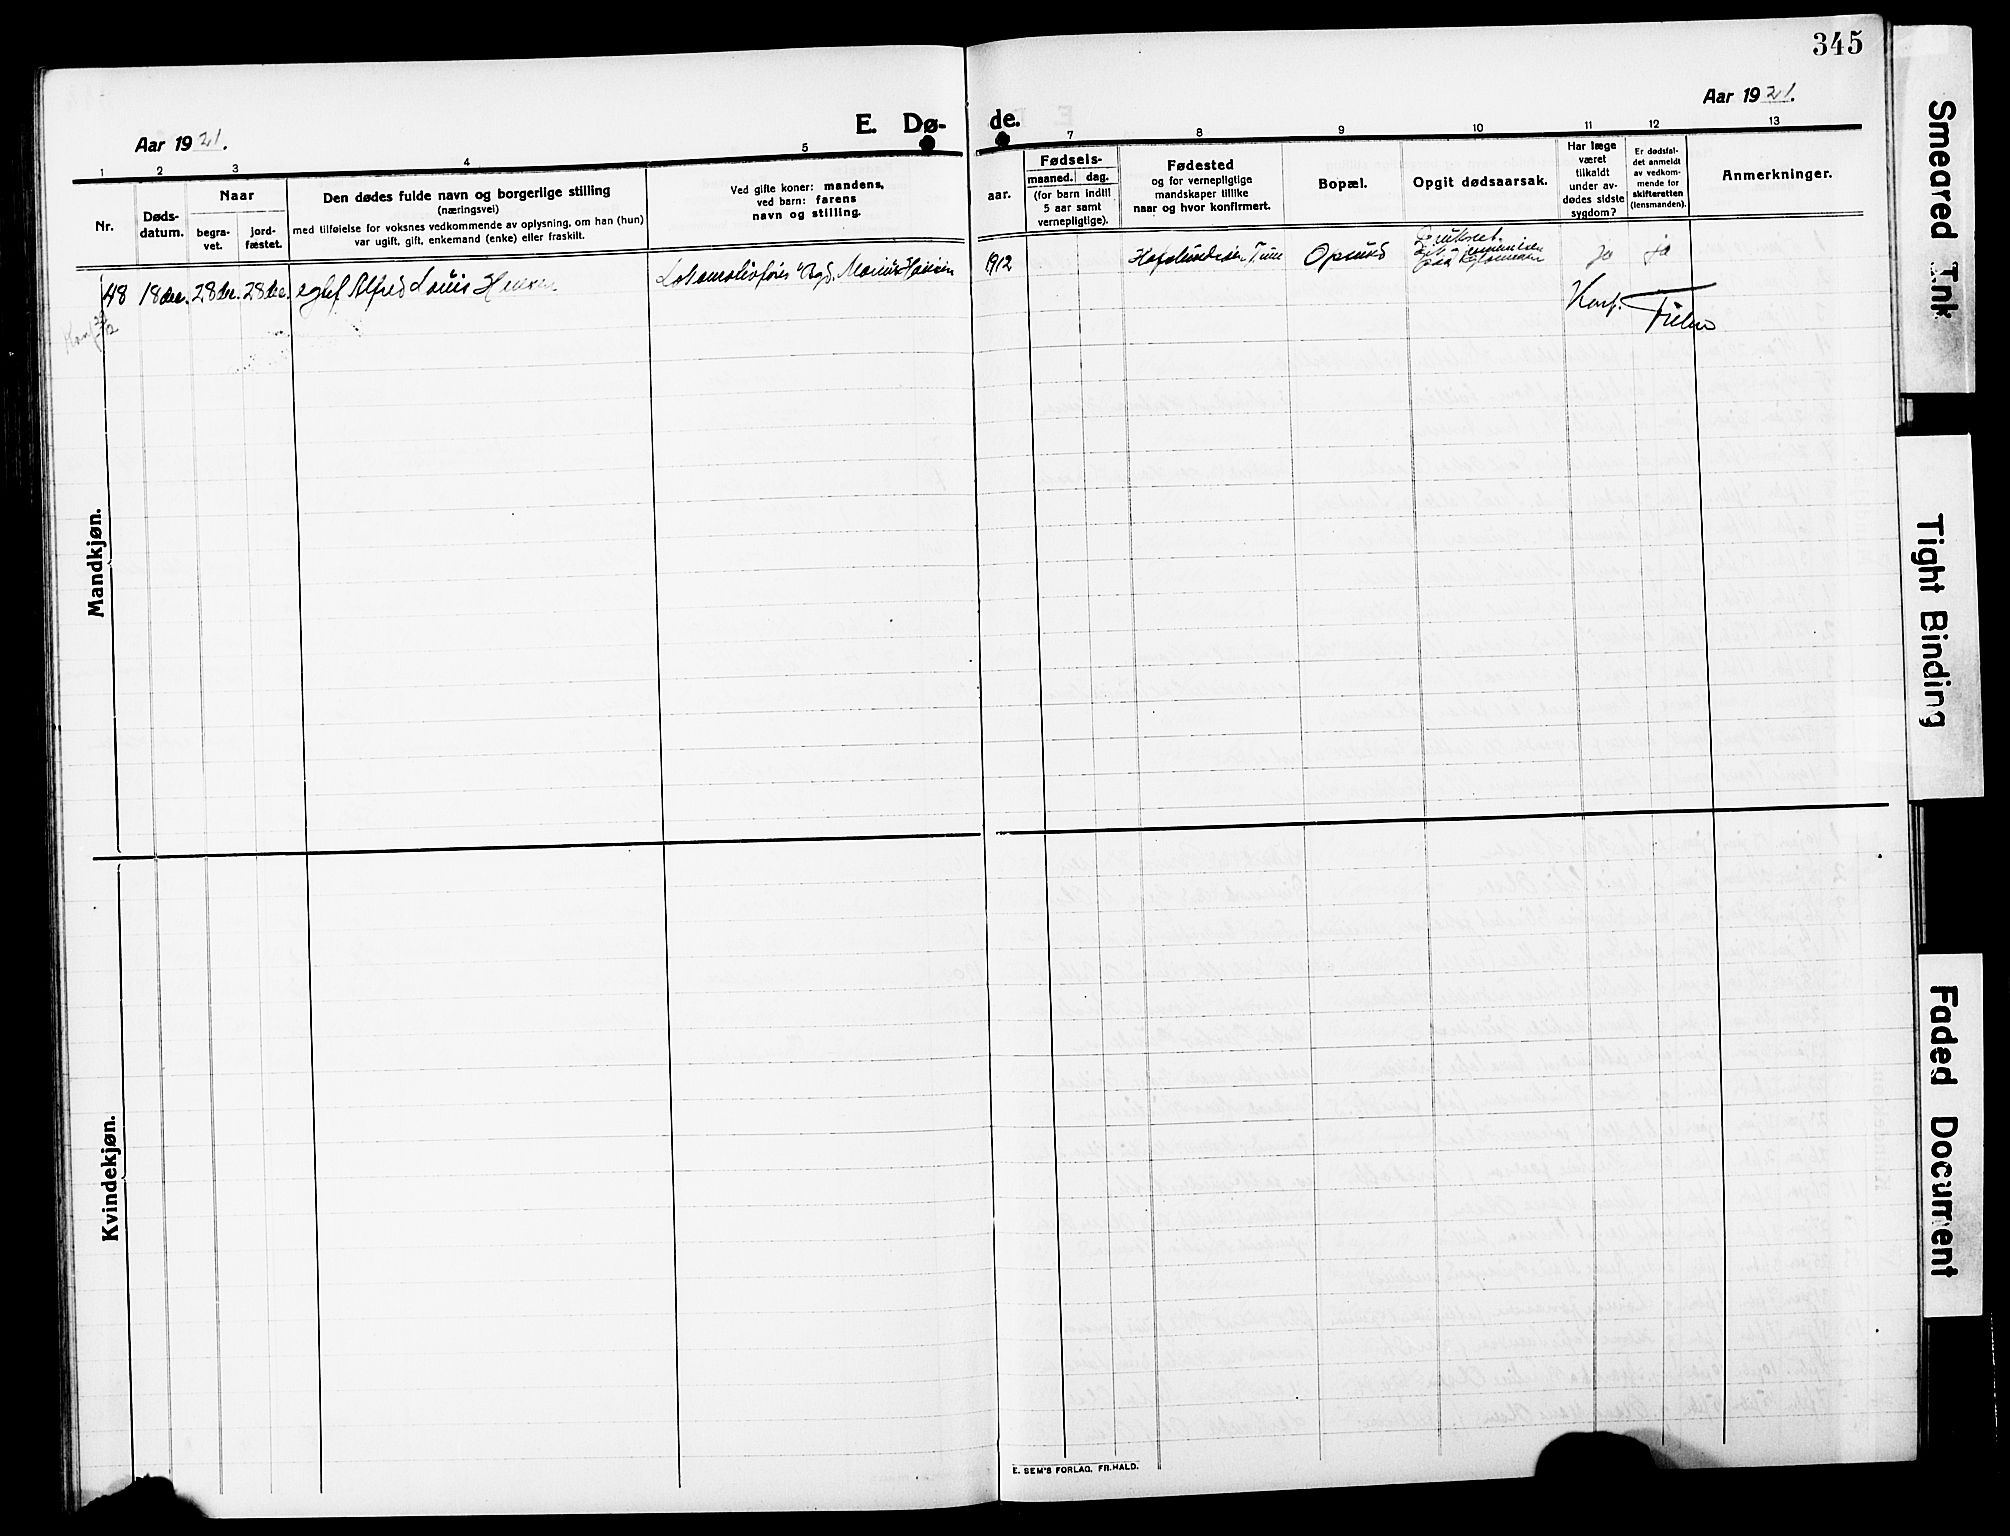 345
Aar 1921.
E. Dø-
de.
Aar 1921.
1 2 3 4 5
7 8 9 10 11 12 13
Nr.
Døds-
datum.
Naar
begra-
vet.
jord-
fæstet.
Den dødes fulde navn og borgerlige stilling
(næringsvei)
med tilføielse for voksnes vedkommende av oplysning, om han (hun)
var ugift, gift, enkemand (enke) eller fraskilt.
Ved gifte koner: mandens,
ved barn: farens
navn og stilling.
aar.
Fødsels-
maaned. dag.
(for barn indtil
5 aar samt
vernepligtige).
Fødested
og for vernepligtige
mandskaper tillike
naar og hvor konfirmert.
Bopæl.
Opgit dødsaarsak.
Har læge
været
tilkaldt
under av-
dødes sidste
sygdom?
Er dødsfal-
det anmeldt
av vedkom-
mende for
skifteretten
(lensmanden).
Anmerkninger.
48 18 dec. 28 dec. 28 dec. Alfred Louis Hansen
Lokomotivfører Marius Hansen
1912
Tune
Opsund
Druknet
Ja
ja
Konf.
Mandkjøn.
Kvindekjøn.
E. SEM'S FORLAG, FR.HALD.
Smeared Ink
Tight Binding
Faded Document